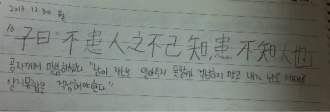 2013.12.30 월
子曰 "不患人之不己知患不知人也
공자께서 말씀하셨다 "남이 나를 알아주지 못할까 걱정하지 말고 내가 남을 제대로
알지못함을 걱정해야한다."